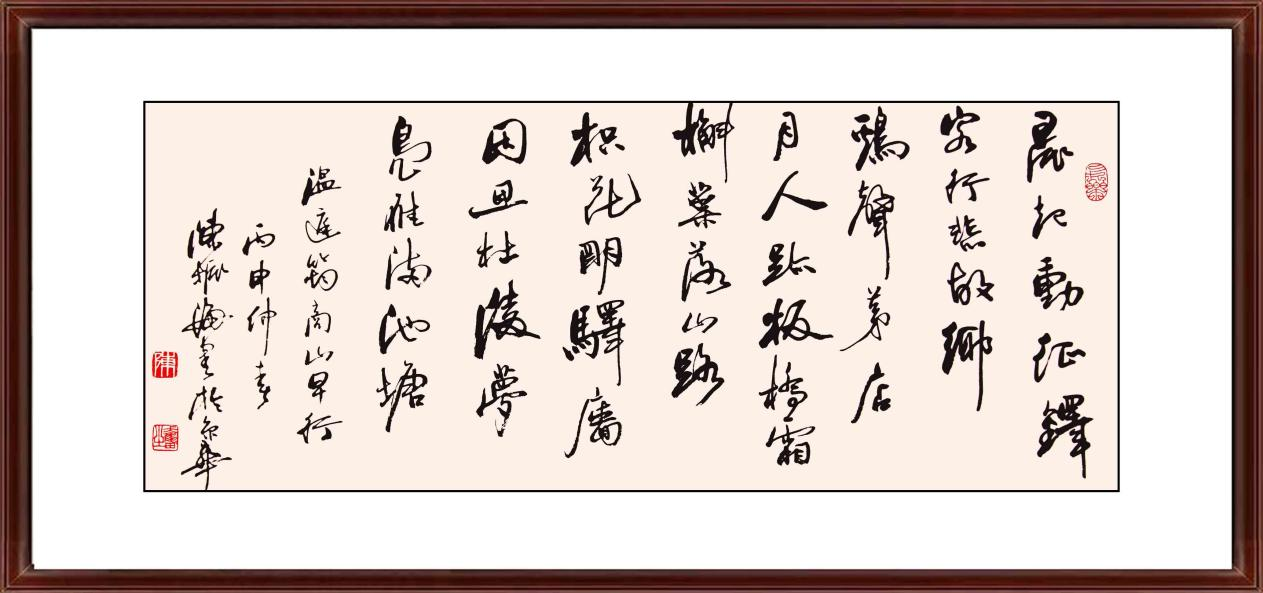 晨起動征鐸
客行悲故鄉
鷄聲茅店
月人跡板橋霜
槲葉落山路
枳花明驛牆
因思杜陵夢
鳧雁滿池塘
溫庭筠商山早行
丙申仲春
陳振書於京華